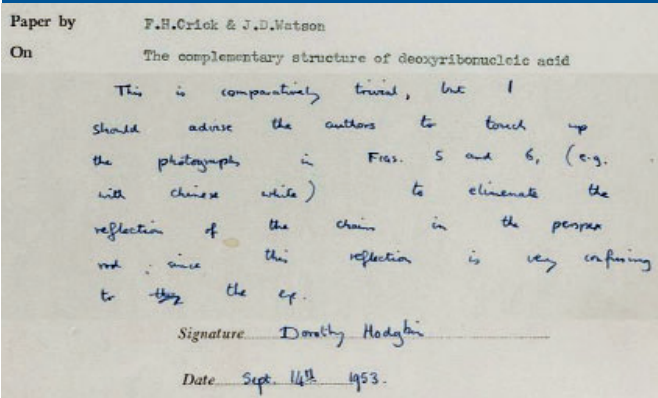 Paper by F.H.Crick & J.D.Watson
On The complementary structure of deoxyribonucleic acid
This is comparatively trivial, but I
should advise the authors to touch up
the photographs in Figs. 5 and 6, (e.g.
with chinese white) to elimenate the
reflection of the chain in the perspex
rod, since this reflection is very confusing
to the eye.
Signature Dorothy Hodgkin
Date Sept. 14th 1953.